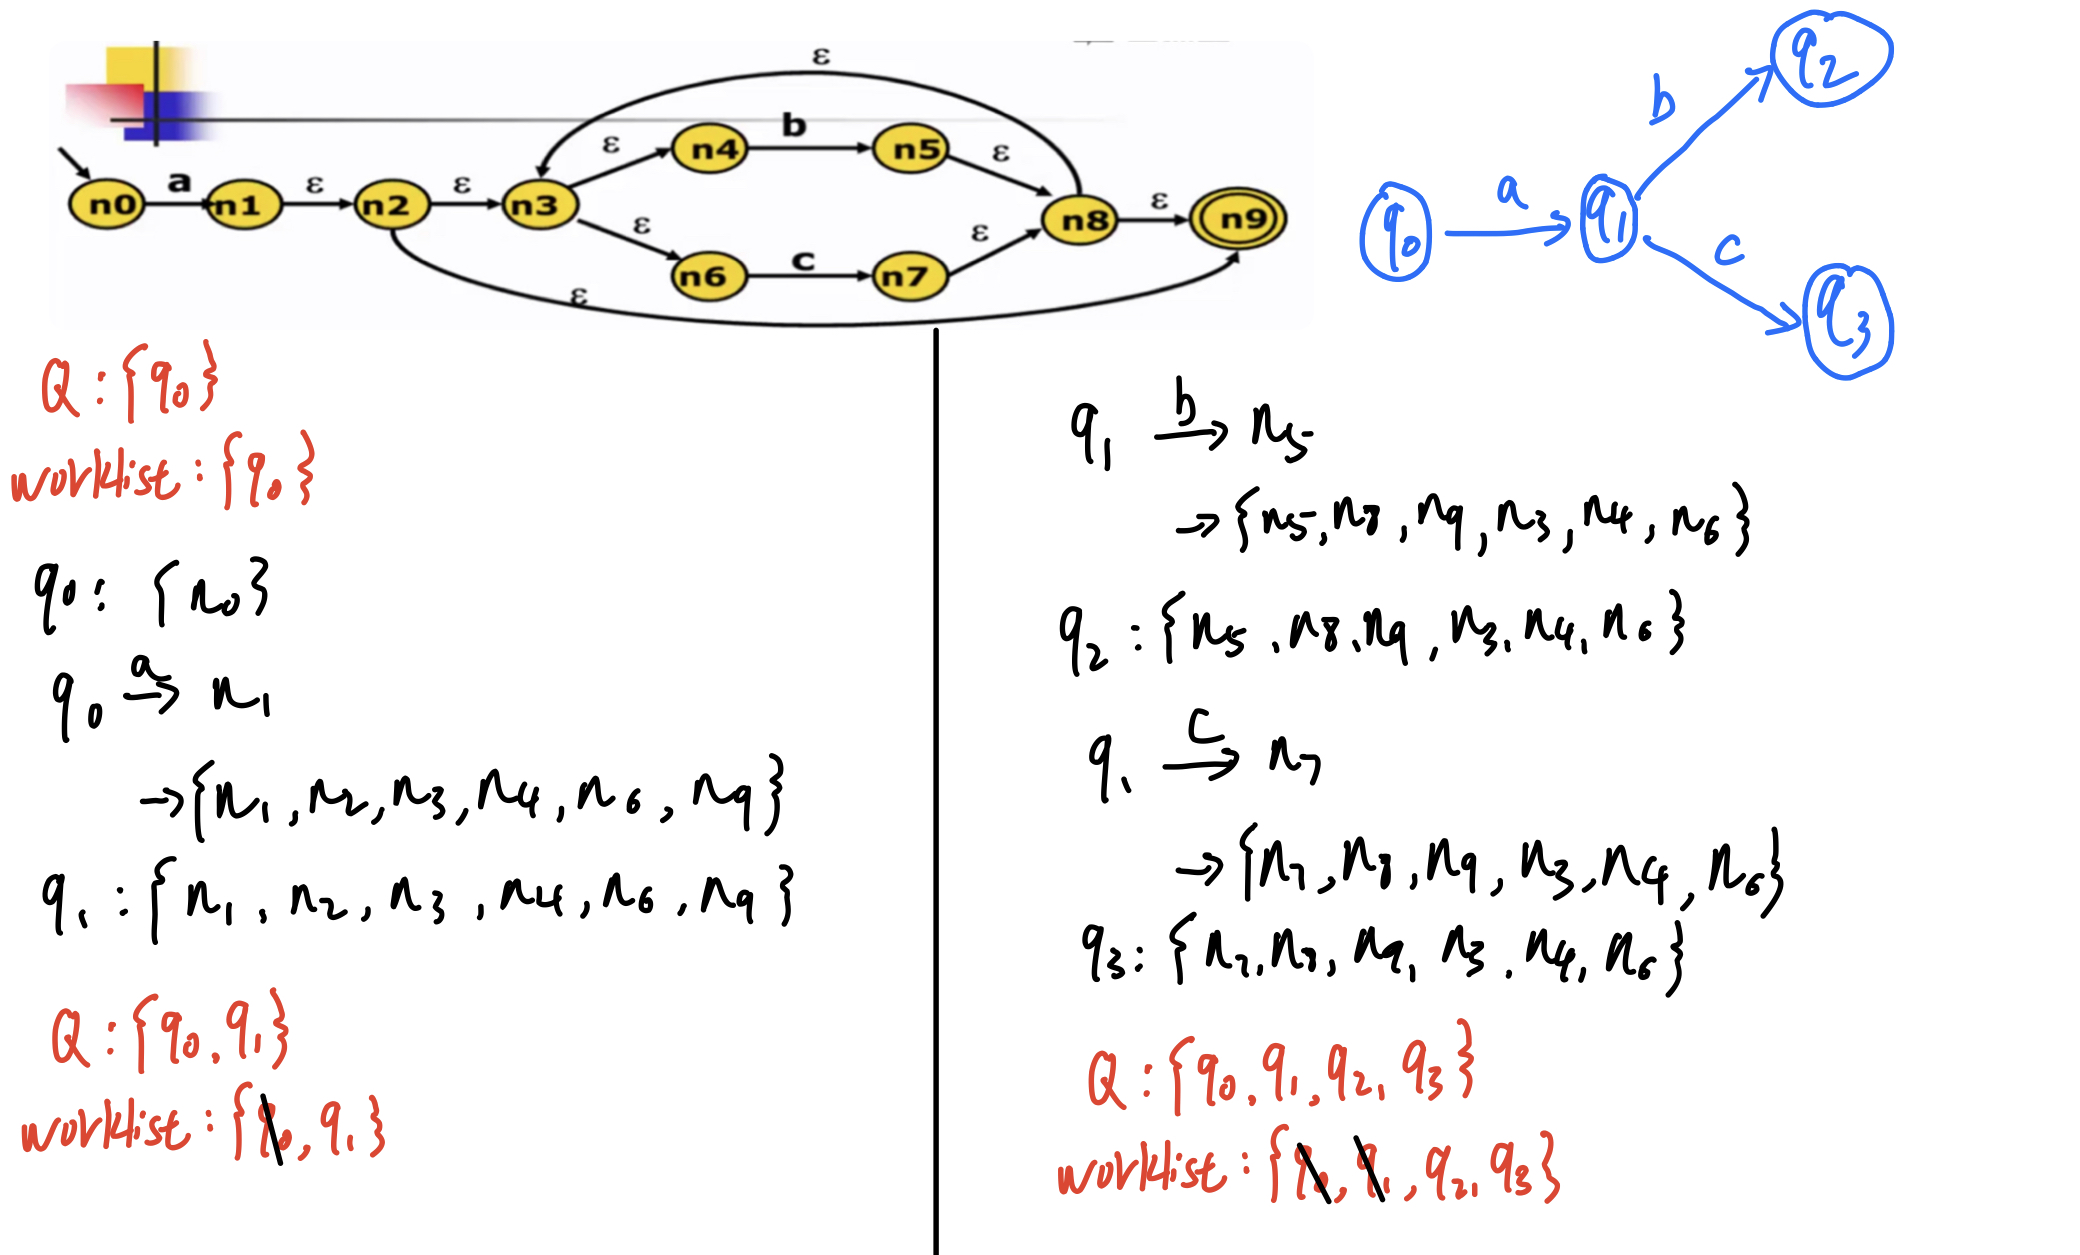 ε
a ε ε ε b ε ε
n0 n1 n2 n3 n4 n5 n8 n9
ε c ε
n6 n7
ε
q0 a q1 b q2
c q3
Q : {q0}
worklist : {q0}
q0 : {n0}
q0 a→ n1
→ {n1 , n2 , n3 , n4 , n6 , n9}
q1 : {n1 , n2 , n3 , n4 , n6 , n9}
Q : {q0 , q1}
worklist : {q0 , q1}
q1 b→ n5
→ {n5 , n8 , n9 , n3 , n4 , n6}
q2 : {n5 , n8 , n9 , n3 , n4 , n6}
q1 c→ n7
→ {n7 , n8 , n9 , n3 , n4 , n6}
q3 : {n7 , n8 , n9 , n3 , n4 , n6}
Q : {q0 , q1 , q2 , q3}
worklist : {q0 , q1 , q2 , q3}